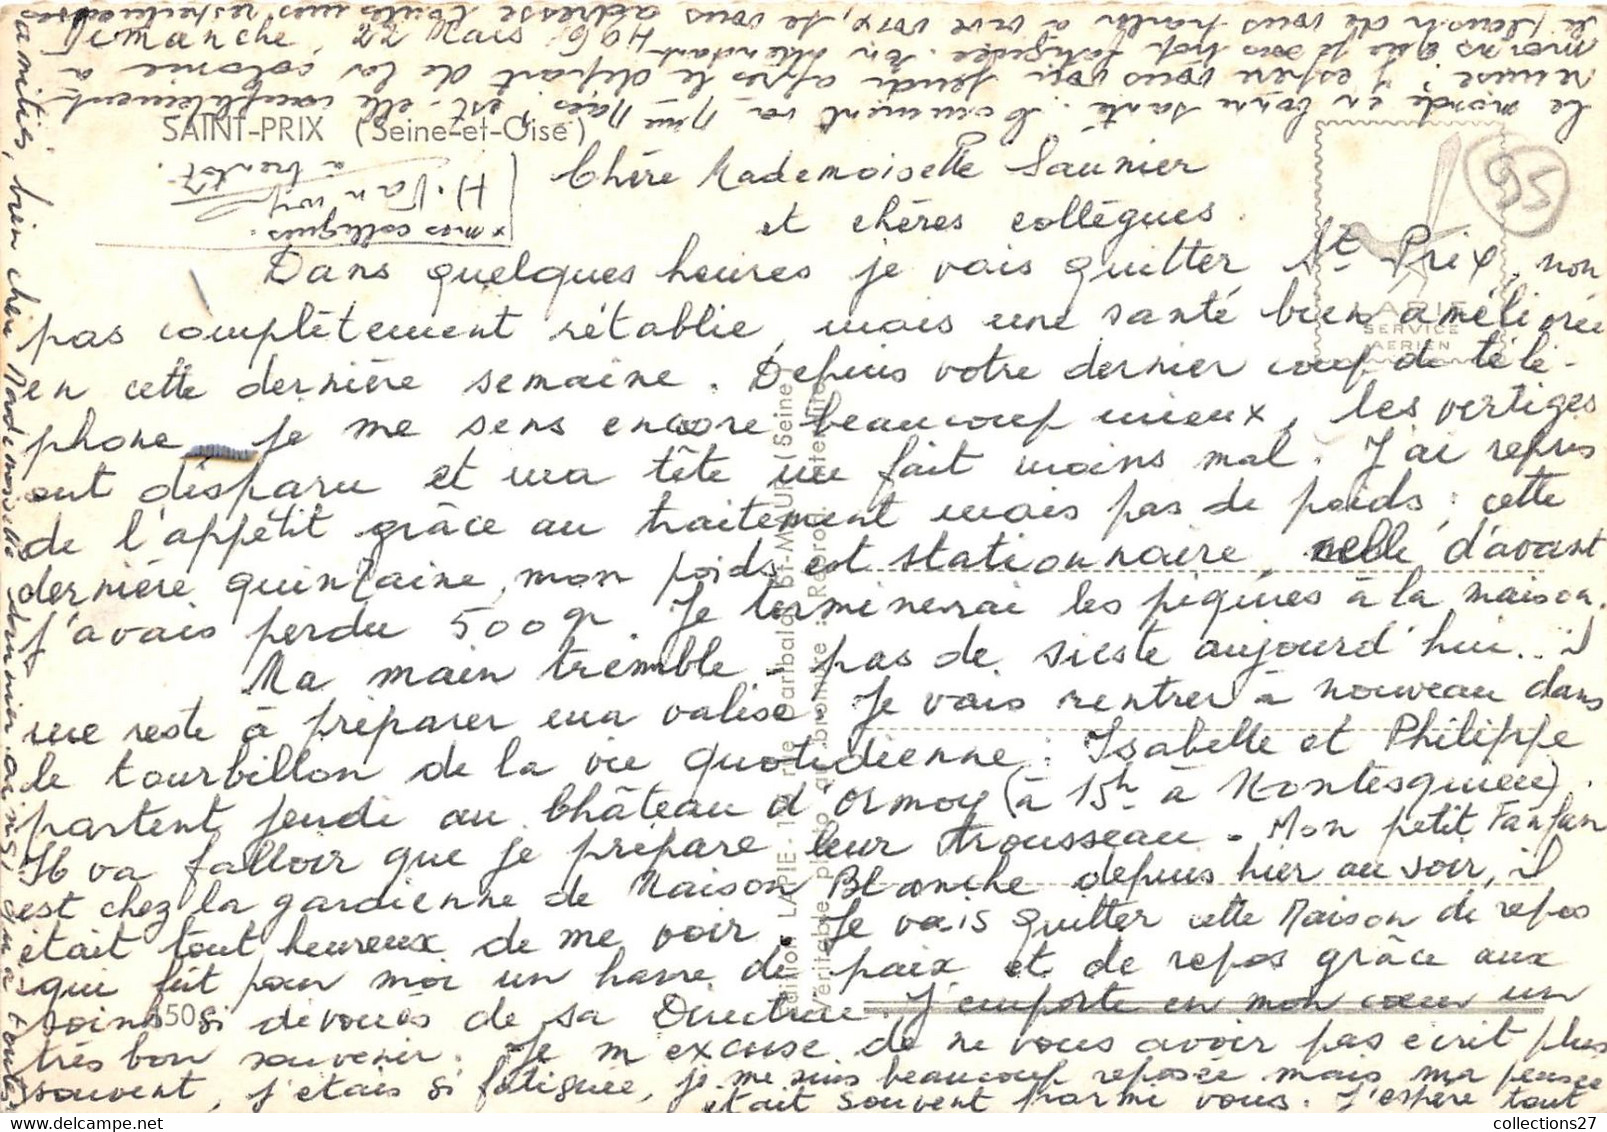 Dimanche, 22 Mars 1964
SAINT-PRIX (Seine-et-Oise)
Chère Mademoiselle Saunier
et chères collègues.
Dans quelques heures je vais quitter St Prix, non
pas complètement rétablie, mais une santé bien améliorée
en cette dernière semaine. Depuis votre dernier coup de télé-
phone je me sens encore beaucoup mieux, les vertiges
ont disparu et ma tête me fait moins mal. J'ai repris
de l'appétit grâce au traitement mais pas de poids ; cette
dernière quinzaine, mon poids est stationnaire, celle d'avant
j'avais perdu 500 gr. Je terminerai les piqûres à la maison.
Ma main tremble - pas de sieste aujourd'hui.. il
me reste à préparer ma valise. Je vais rentrer à nouveau dans
le tourbillon de la vie quotidienne : Isabelle et Philippe
partent jeudi au Château d'Ormoy (à 15h à Montesquieu).
Il va falloir que je prépare leur trousseau - Mon petit Fanfan
est chez la gardienne de Maison Blanche depuis hier au soir, il
était tout heureux de me voir. Je vais quitter cette Maison de repos
qui fut pour moi un havre de paix et de repos grâce aux
soins si dévoués de sa Directrice. J'emporte en mon cœur un
très bon souvenir. Je m'excuse de ne vous avoir pas écrit plus
souvent, j'étais si fatiguée, je me suis beaucoup reposée mais ma pensée
était souvent parmi vous. J'espère tout
le monde en bonne santé. Comment va Mme Mais, est-elle complètement
remise ? J'espère vous voir jeudi après le départ de la colonie à
moins que je sois trop fatiguée. En attendant
le plaisir de vous parler à vive voix, je vous adresse toutes mes respectueuses
amitiés, bien chère Mademoiselle Saunier ainsi qu'à toutes
x mes collègues.
H. Van
à bientôt.
95
LAPIE
SERVICE
AERIEN
Edition LAPIE - rue Garibaldi, St-MAUR (Seine)
Véritable photo au bromure : Reprod. Interdite